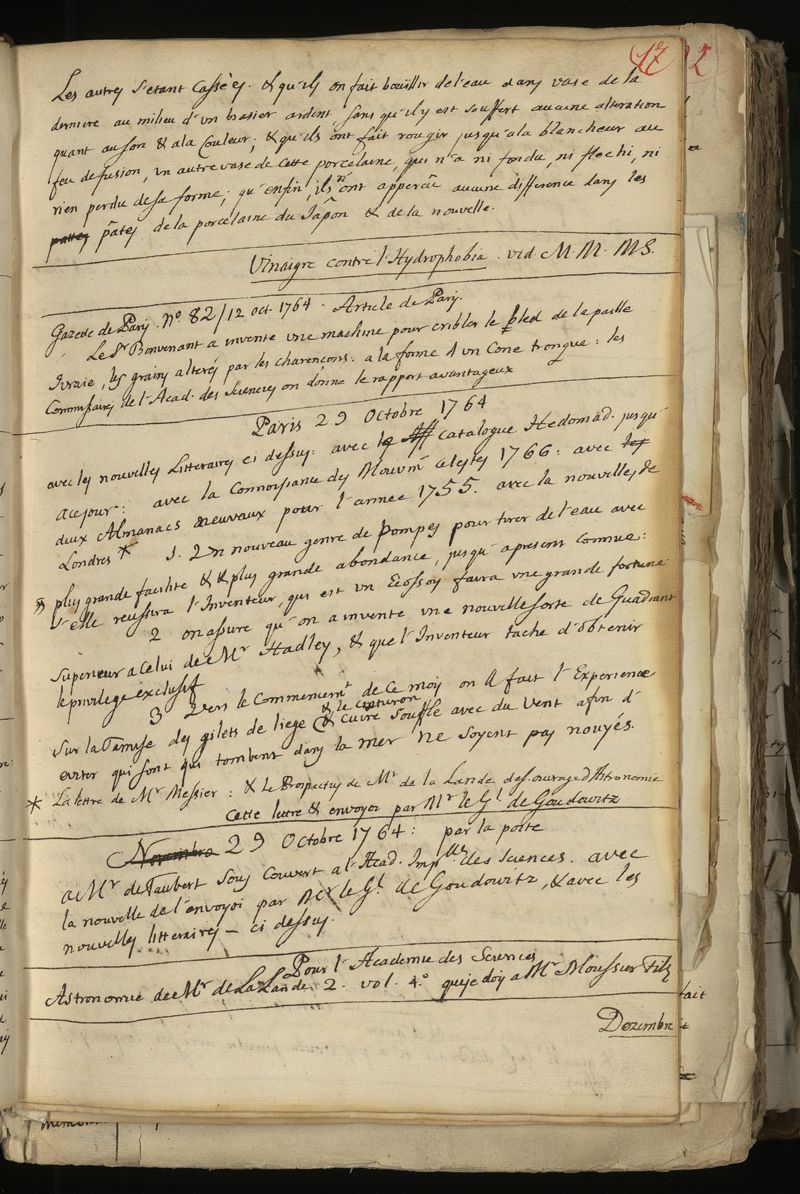 17
Les autres s'etant Cassées. & qu'ils on fait boüillir de l'eau dans vase de la
derniere au milieu d'un brasier ardent, sans qu'il y est souffert aucune alteration
quant au son & a la Couleur; & qu'ils ont fait rougir jusqu'a la blancheur au
feu de fusion, un autre vase de Cette porcelaine, qui n'a ni fondu, ni flechi, ni
rien perdu de sa forme; qu'enfin ils n'ont apperçû aucune difference dans les
pattes pâtes de la porcelaine du Japon & de la nouvelle.
Vinaigre contre l'Hydrophobia. vid. M. M. MS.
Gazette de Paris. No. 82/12 oct. 1764. Article de Paris.
Le Sr. Bonvenant a invente une machine pour cribler le bled de la paille
Ivraie, les grains alterés par les charençons: a la forme d'un Cone tronqué: les
Commissaires de l'Acad. des Sciences on donné le rapport avantageux
Paris 29 Octobre 1764
avec les nouvelles Litteraires ci dessus: avec le Catalogue Hedomad. jusqu'
a ce jour: avec la Connoissance des Mouvmt celestes 1766: avec les
deux Almanacs neuvaux pour l'année 1755. avec la nouvelles de
Londres * 1. Un nouveau genre de Pompes pour tirer de l'eau avec
plus grande facilité & plus grande abondance, jusqu' apresent connue:
s'elle reussira l'Inventeur qui est un Ecossoy faira une grande fortune
2 on assure qu'on a invente une nouvelle sorte de Quadrant
Superieur a Celui de Mr Hadley, & que l'Inventeur tache d'obtenir
le privilege exclusif
3 Vers le Commencemt de Ce mois on A fait l'Experience
& le ceinturon
Sur la Tamise des gilets de liege & cuivre Soufflé avec du Vent afin d'
eviter qui sont qui tombent dans la mer ne soyent pas noyés.
* La lettre de Mr Messier: & le Prospectus de Mr de la Lande des ouvrages d'Astronomie
Cette lettre & envoyoi par Mr le Gl. de Goudowitz
Novembre 29 Octobre 1764: par la poste
a Mr de Taubert Sous Couvert a l'Acad. Implle des Sciences. avec
la nouvelle de l'envoyoi par Mr le Gl. de Goudowitz, & avec les
nouvelles litteraires — ci dessus.
Pour l'Academie des Sciences
Astronomie de Mr de La Lande. 2. vol. 4.° que je doy a Mr Moussier Fils
Dezembre